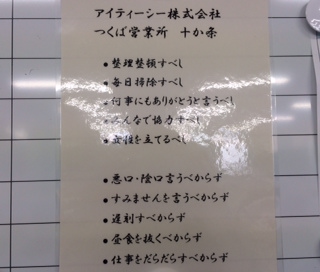 アイティーシー株式会社
つくば営業所 十か条
●整理整頓すべし
●毎日掃除すべし
●何事にもありがとうと言うべし
●みんなで協力すべし
性を立てるべし
●悪口・陰口言うべからず
●すみませんを言うべからず
●遅刻すべからず
●昼食を抜くべからず
●仕事をだらだらすべからず